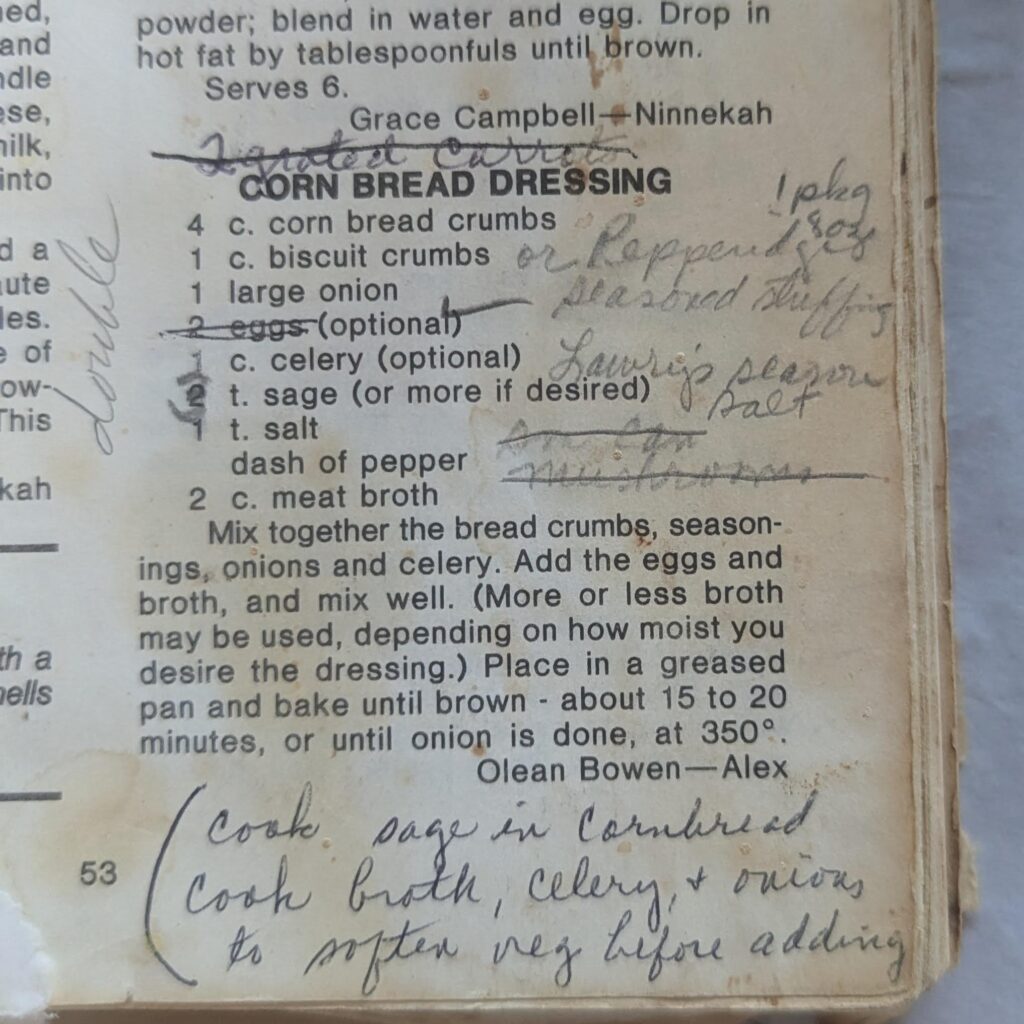 ned,
and
ndle
ese,
nilk,
into
d a
aute
les.
e of
ow-
This
kah
th a
nells
double
powder; blend in water and egg. Drop in
hot fat by tablespoonfuls until brown.
Serves 6.
Grace Campbell—Ninnekah
2 grated carrots
CORN BREAD DRESSING
4 c. corn bread crumbs
1 c. biscuit crumbs or Pepperidges
1 pkg
8 oz
seasoned stuffing
1 large onion
2 eggs (optional)
1 c. celery (optional)
Lawry's season
salt
2 t. sage (or more if desired)
1 t. salt
can
mushrooms
dash of pepper
2 c. meat broth
Mix together the bread crumbs, season-
ings, onions and celery. Add the eggs and
broth, and mix well. (More or less broth
may be used, depending on how moist you
desire the dressing.) Place in a greased
pan and bake until brown - about 15 to 20
minutes, or until onion is done, at 350°.
Olean Bowen—Alex
(cook sage in cornbread
cook broth, celery, + onions
to soften veg before adding
53